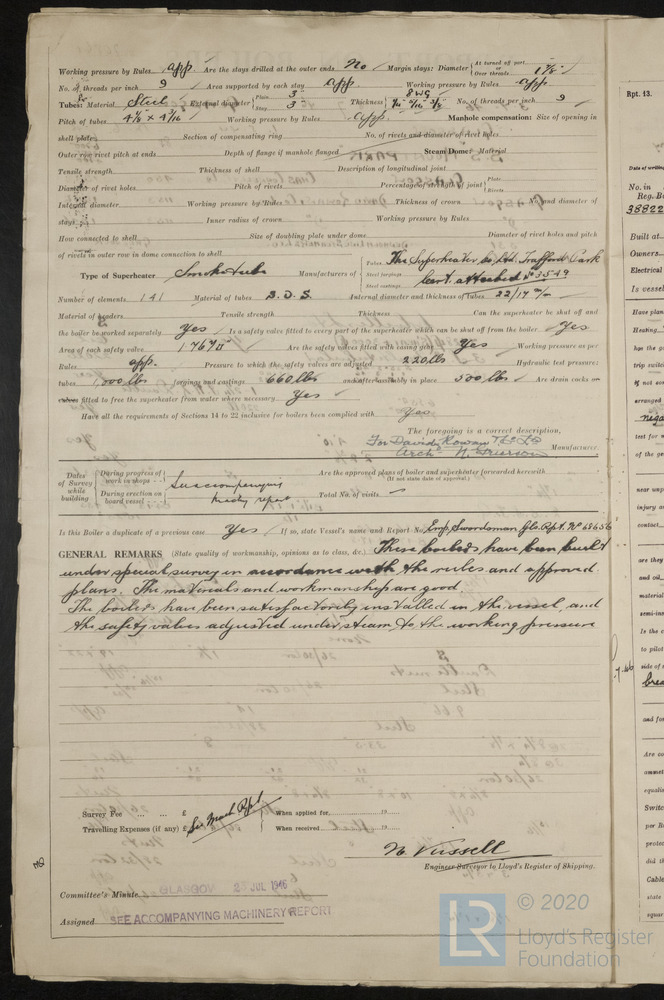 Working pressure by Rules app. Are the stays drilled at the outer ends No Margin stays: Diameter { At turned off part, or Over threads 1 7/8"
No. of threads per inch 9 Area supported by each stay app. Working pressure by Rules app.
Tubes: Material Steel External diameter { Plain 3" Stay 3" Thickness { 8 WG No. of threads per inch 9
Pitch of tubes Working pressure by Rules app. Manhole compensation: Size of opening in
shell plate Section of compensating ring No. of rivets and diameter of rivet holes
Outer row rivet pitch at ends Depth of flange if manhole flanged Steam Dome: Material
Tensile strength Thickness of shell Description of longitudinal joint
Diameter of rivet holes Pitch of rivets Percentage of strength of joint { Plate Rivets
Internal diameter Working pressure by Rules Thickness of crown No. and diameter of
stays Inner radius of crown Working pressure by Rules
How connected to shell Size of doubling plate under dome Diameter of rivet holes and pitch
of rivets in outer row in dome connection to shell
Type of Superheater Smoke tube Manufacturers of { Tubes The Superheater Co Ltd. Trafford Park
Steel forgings
Steel castings Cert. attached No 3549
Number of elements 141 Material of tubes S.D.S. Internal diameter and thickness of tubes 22/17 m/m
Material of headers S Tensile strength Thickness Can the superheater be shut off and
the boiler be worked separately Yes Is a safety valve fitted to every part of the superheater which can be shut off from the boiler Yes
Area of each safety valve 1.767 □" Are the safety valves fitted with easing gear Yes Working pressure as per
Rules app. Pressure to which the safety valves are adjusted 220 lbs Hydraulic test pressure:
tubes 1,500 lbs forgings and castings 660 lbs and after assembly in place 500 lbs Are drain cocks or
valves fitted to free the superheater from water where necessary Yes
Have all the requirements of Sections 14 to 22 inclusive for boilers been complied with Yes
The foregoing is a correct description,
For David Rowan & Co Ld
Archd. N. Grierson Manufacturer.
Dates of Survey while building { During progress of work in shops
During erection on board vessel
See accompanying
machy report
Are the approved plans of boiler and superheater forwarded herewith
(If not state date of approval.)
Total No. of visits
Is this Boiler a duplicate of a previous case Yes If so, state Vessel's name and Report No. Emp. Swordsman Gls. Rpt. No 65656
GENERAL REMARKS (State quality of workmanship, opinions as to class, &c.) These boilers have been built
under special survey in accordance with the rules and approved
plans. The materials and workmanship are good.
The boilers have been satisfactorily installed in the vessel, and
the safety valves adjusted under steam to the working pressure
Survey Fee £ See Mach Rpt When applied for 19
Travelling Expenses (if any) £ When received 19
N. Russell
Engineer Surveyor to Lloyd's Register of Shipping.
Committee's Minute GLASGOW 23 JUL 1946
Assigned SEE ACCOMPANYING MACHINERY REPORT
Rpt. 13.
Date of writing
No. in
Reg. B
38822
Built at
Owners
Electrical
Is vessel
Have plan
Heating,
has the go
trip switch
if not co
arranged
nega
test for
of the ge
near unp
injury a
contact
are they
and oil
material
semi-ins
Is the c
to pilot
side of
brea
and fo
Are co
ammet
equalis
Switc
per R
protec
did t
Cable
state
squar
© 2020
Lloyd's Register
Foundation
LR